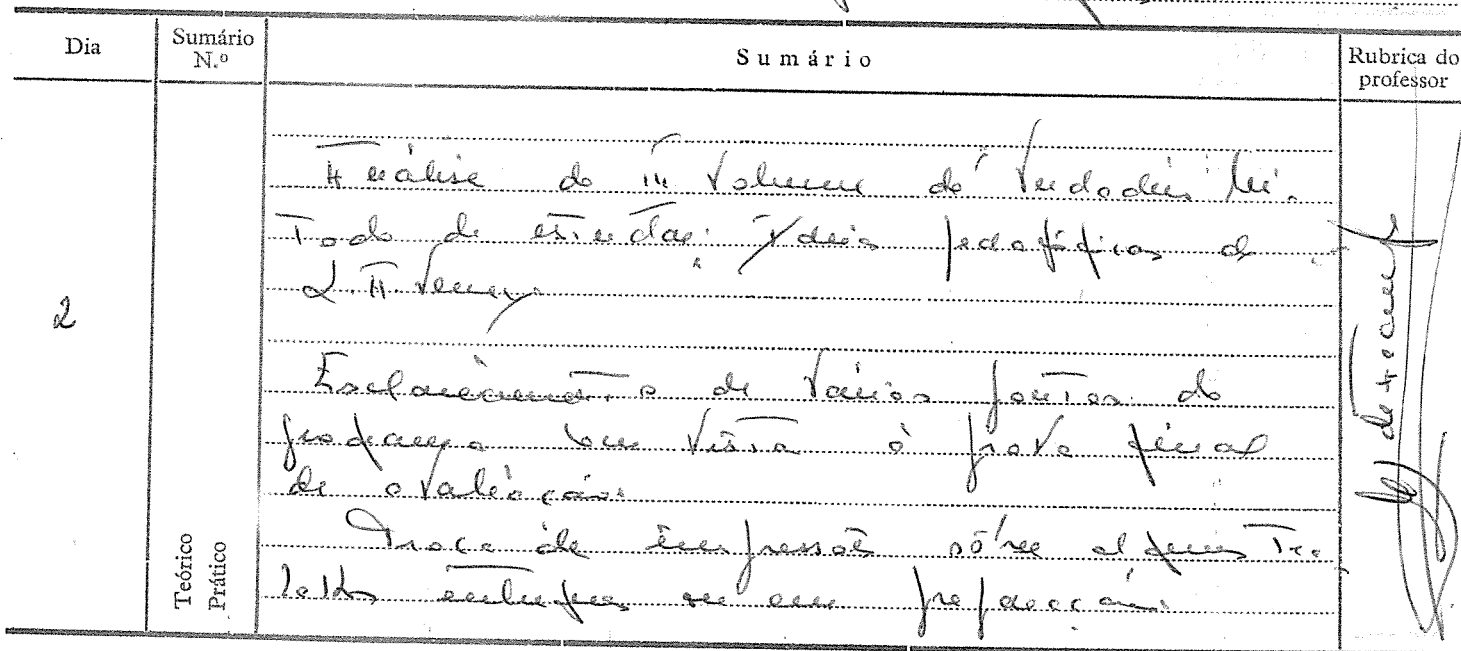 Dia
Sumário N.º
Sumário
Rubrica do professor
Análise do III Volume do "Verdadeiro Mé-
todo de estudar". Ideias pedagógicas de
L. A. Verney.
2
Esclarecimento de vários pontos do
programa com vista à prova final
de avaliação.
Teórico
Prático
Troca de impressões sôbre alguns tra-
balhos entregues ou em preparação.